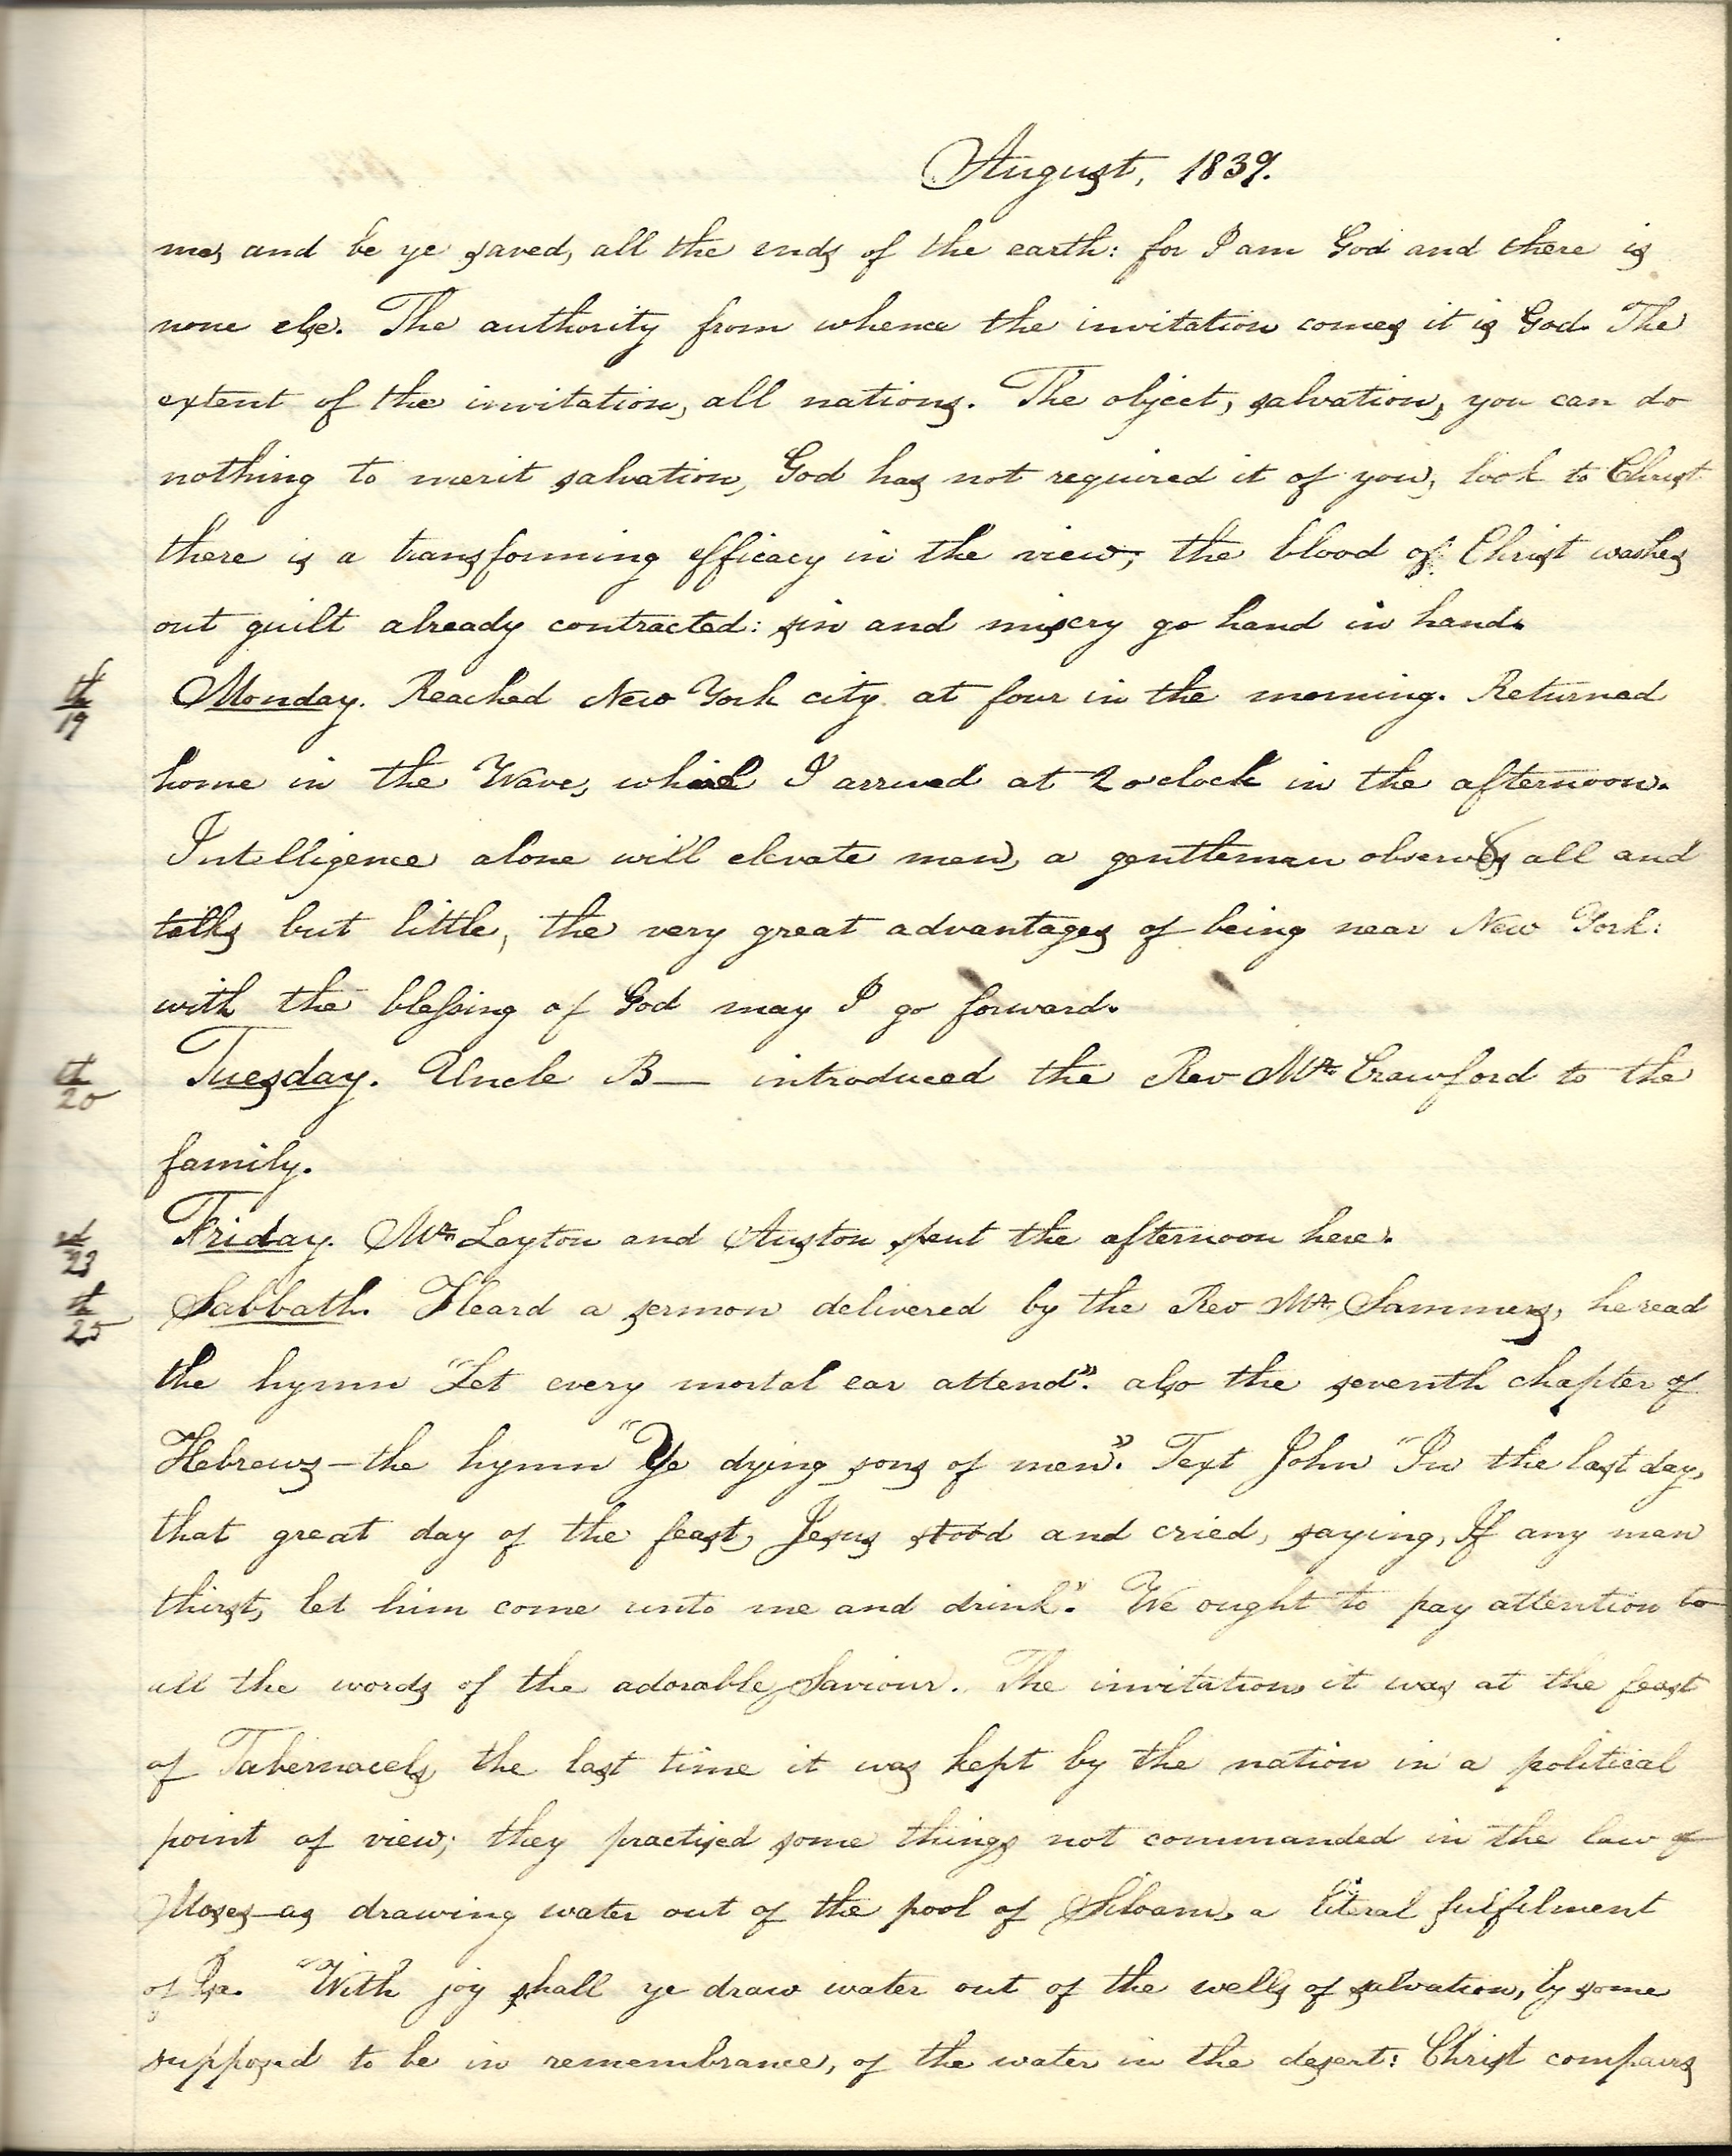 August, 1839.
me, and be ye saved, all the ends of the earth: for I am God and there is
none else. The authority from whence the invitation comes it is God. The
extent of the invitation, all nations. The object, salvation, you can do
nothing to merit salvation, God has not required it of you, look to Christ
there is a transforming efficacy in the view, the blood of Christ washes
out guilt already contracted: sin and misery go hand in hand.
th 19 Monday. Reached New York city at four in the morning. Returned
home in the Wave, which I arrived at 2 o'clock in the afternoon.
Intelligence alone will elevate men, a gentleman observes all and
talks but little, the very great advantages of being near New York:
with the blessing of God may I go forward.
th 20 Tuesday. Uncle B— introduced the Rev Mr. Crawford to the
family.
rd 23 Friday. Mr Layton and Auston spent the afternoon here.
th 25 Sabbath. Heard a sermon delivered by the Rev Mr. Sammers, he read
the hymn "Let every mortal ear attend". also the seventh chapter of
Hebrews—the hymn "Ye dying sons of men". Text John "In the last day,
that great day of the feast, Jesus stood and cried, saying, If any man
thirst, let him come unto me and drink". We ought to pay attention to
all the words of the adorable Saviour. The invitation, it was at the feast
of Tabernacels, the last time it was kept by the nation in a political
point of view; they practised some things not commanded in the law of
Moses—as drawing water out of the pool of Siloam, a literal fulfilment
of Isa. "With joy shall ye draw water out of the wells of salvation, by some
supposed to be in remembrance, of the water in the desert: Christ compairs